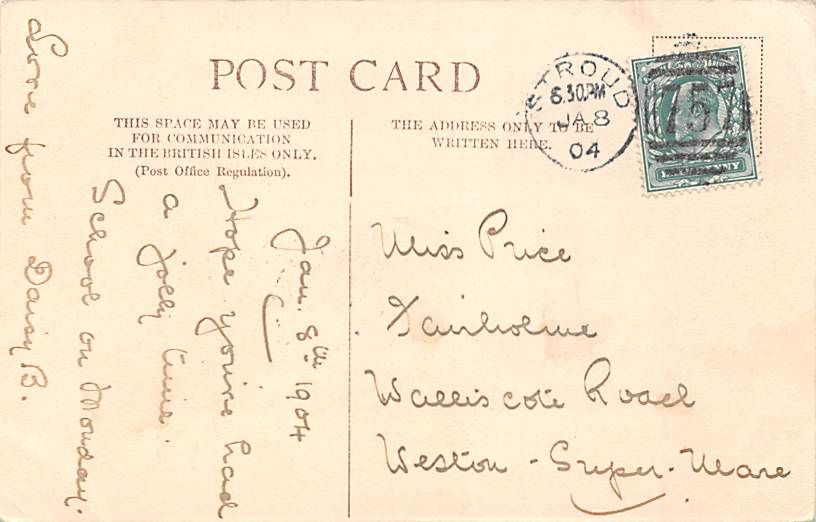 POST CARD
THIS SPACE MAY BE USED
FOR COMMUNICATION
IN THE BRITISH ISLES ONLY.
(Post Office Regulation).
THE ADDRESS ONLY TO BE
WRITTEN HERE.
STROUD
6.30PM
JA 8
04
75
Jan. 8th 1904
Hope you've had
a jolly time.
School on Monday.
Love from Daisy B.
Miss Price
Fairholme
Walliscote Road
Weston-Super-Mare